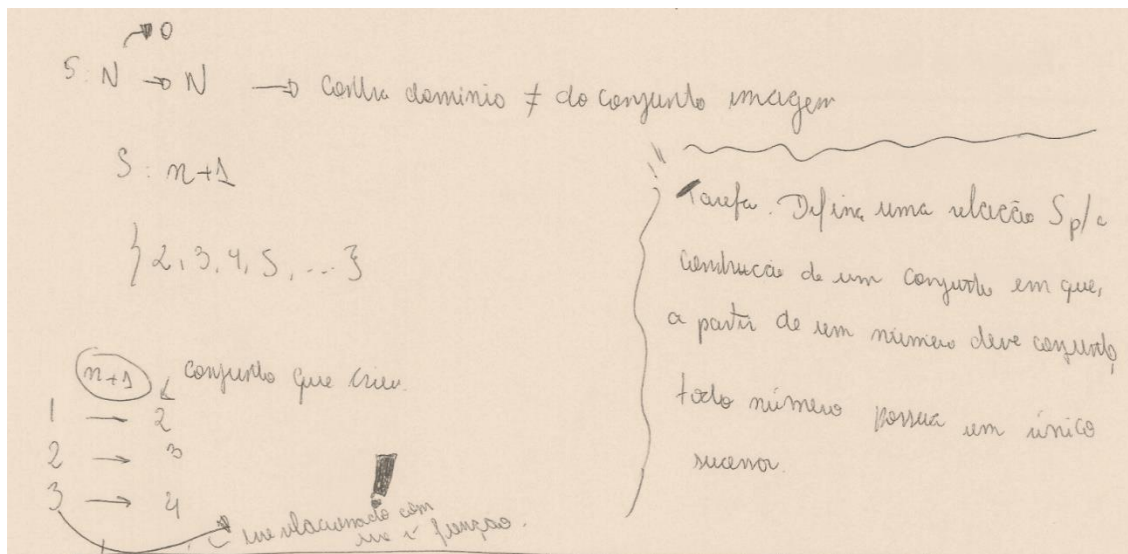 0
S: N → N → Contra dominio ≠ do conjunto imagem
S: n+1
{2, 3, 4, 5, ...}
n+1 conjunto que criei.
1 → 2
2 → 3
3 → 4
com
é função.
Tarefa. Defina uma relação S p/ a
construção de um conjunto em que,
a partir de um número deve conjunto,
todo número possua um único
sucessor.